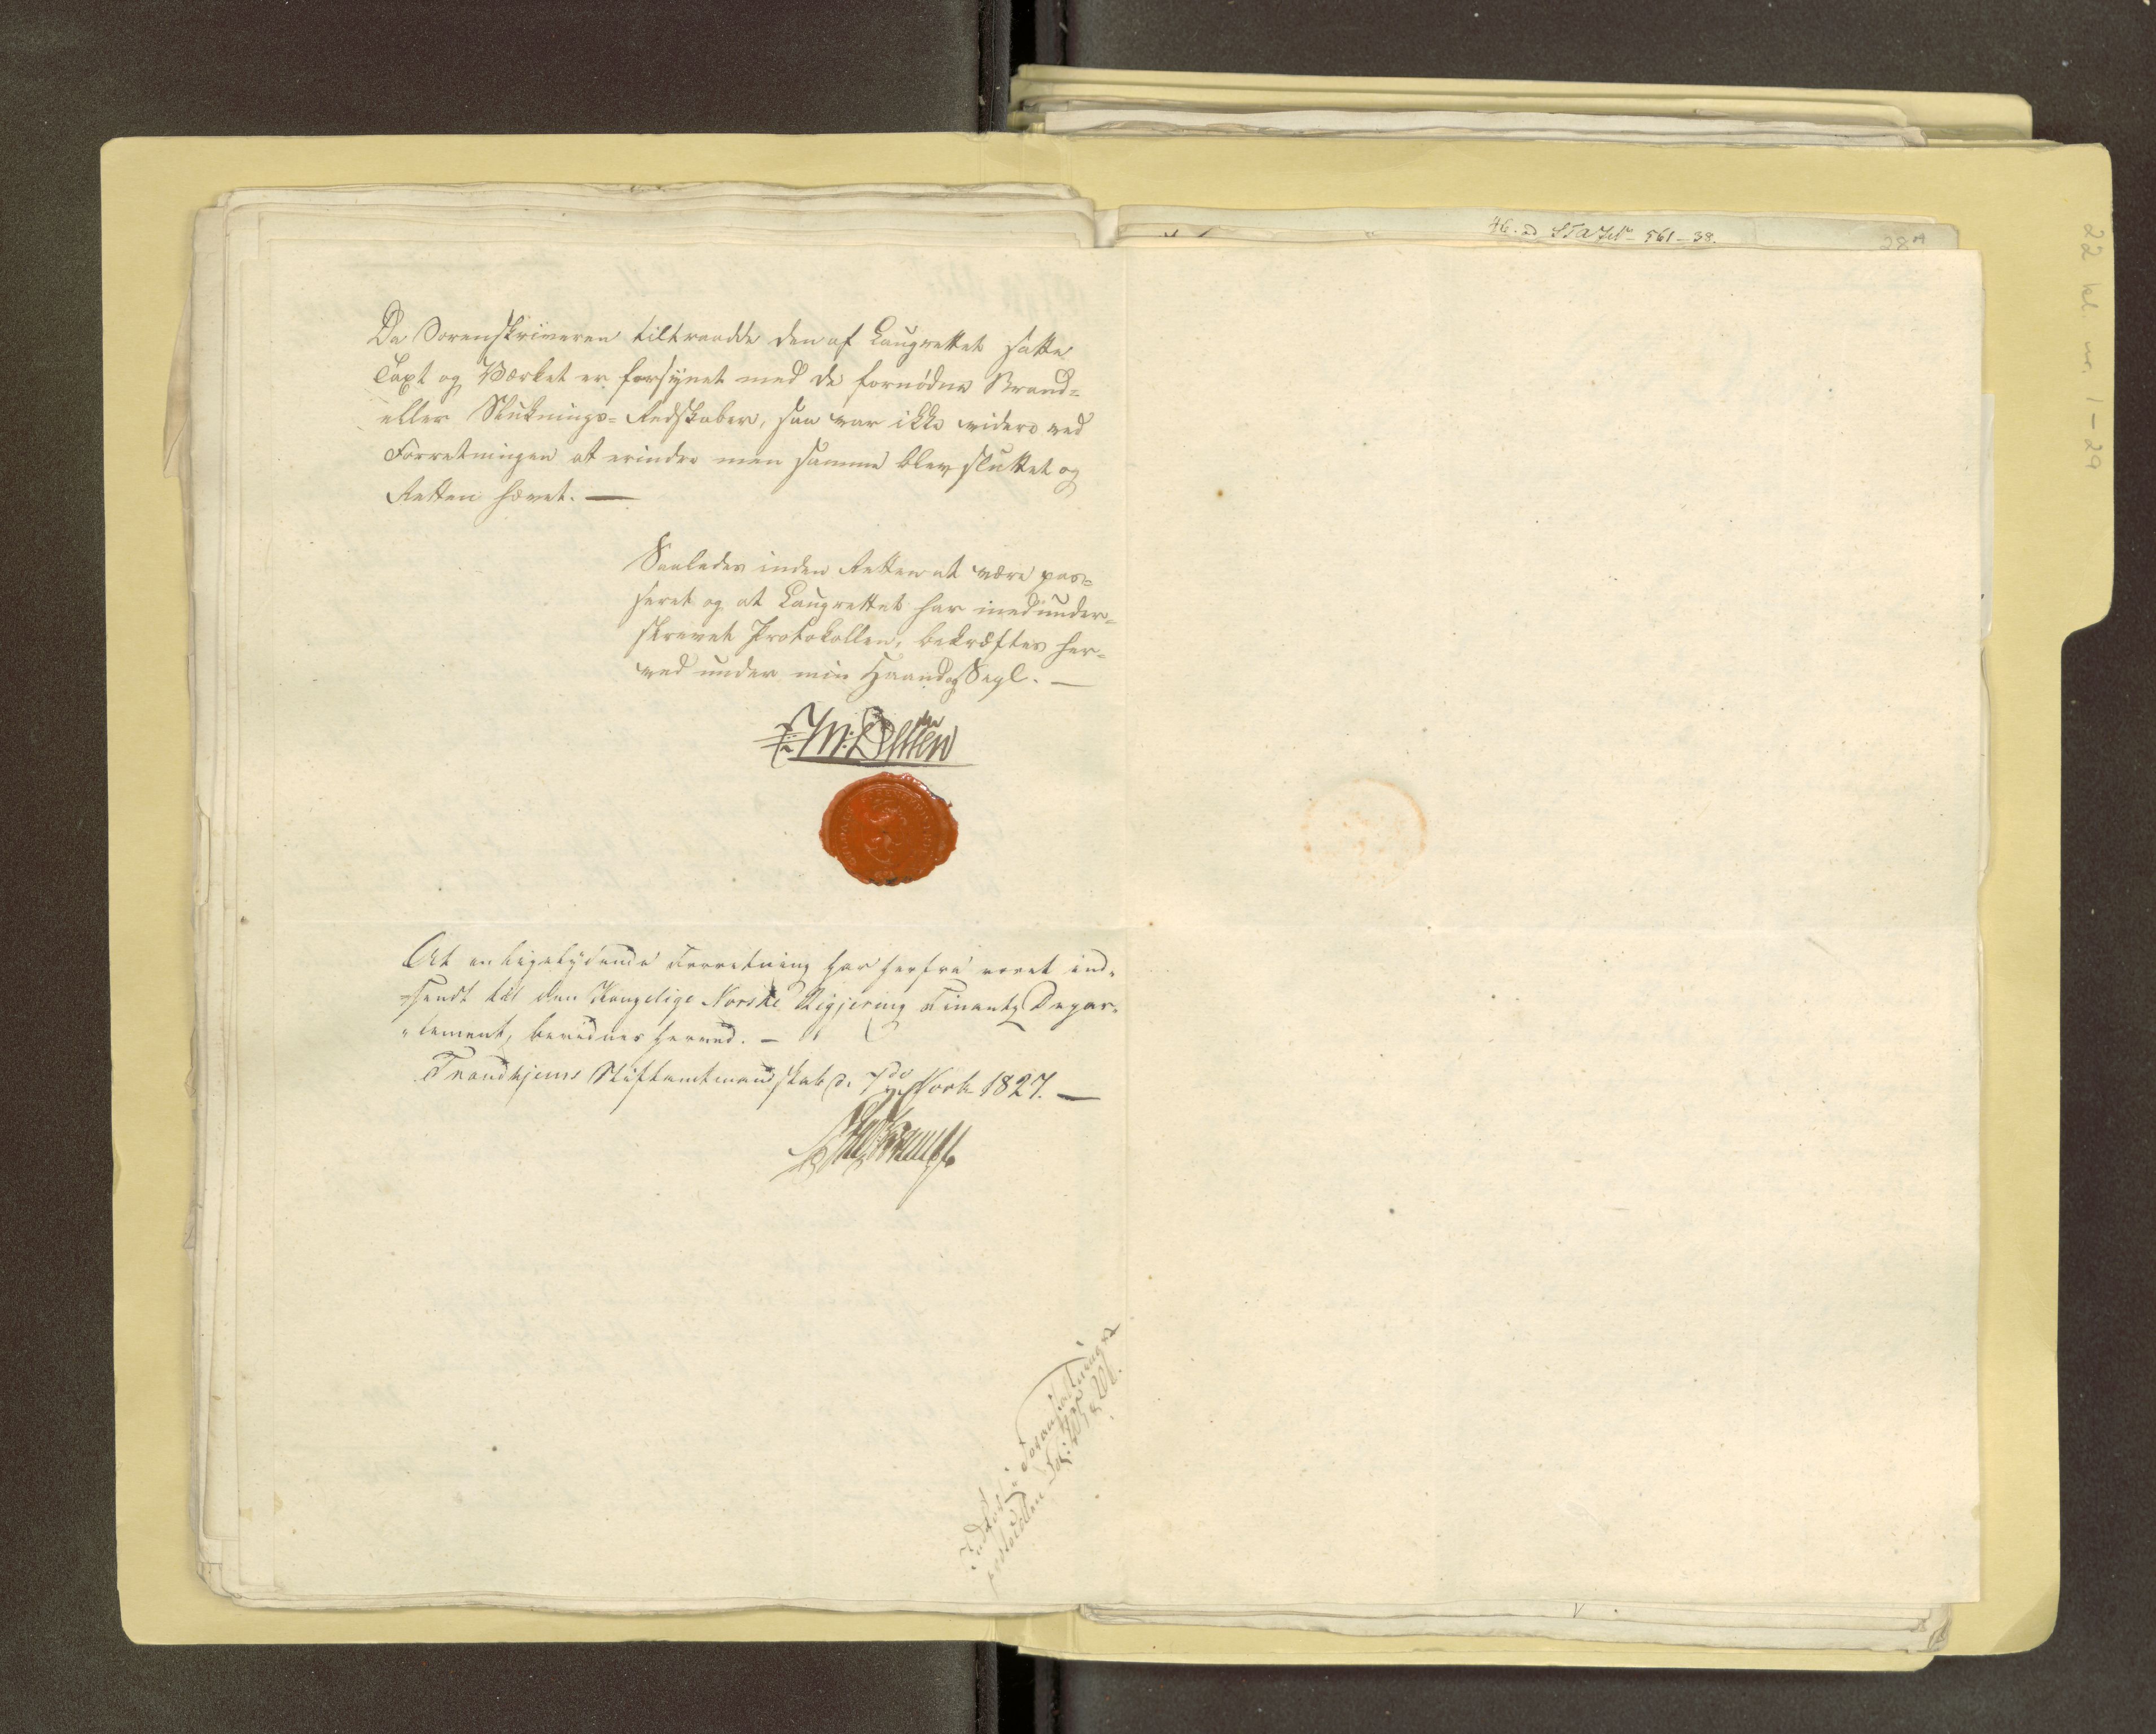 46. ad STA Jnl 561-38.
28A
22 kl nr. 1-29
Da Sorenskriveren tiltraadde den af Laugrettet satte
Taxt og Værket er forsynet med de fornødne Brand-
eller Sluknings-Redskaber, saa var ikke videre ved
Forretningen at erindre men samme blev sluttet og
Retten hævet. —
Saaledes inden Retten at være pas-
seret og at Laugrettet har medunder-
skrevet Protokollen, bekræftes her-
ved under min Haand og Segl. —
At en ligelydende Forretning har herfra været ind-
sendt til den Kongelige Norske Regjerings Finantz Depar-
tement, bevidnes herved. —
Trondhjems Stiftamtmandskab d. 7de Novbr 1827. —
Indført i Foranstaltnings
protocollen Fol: